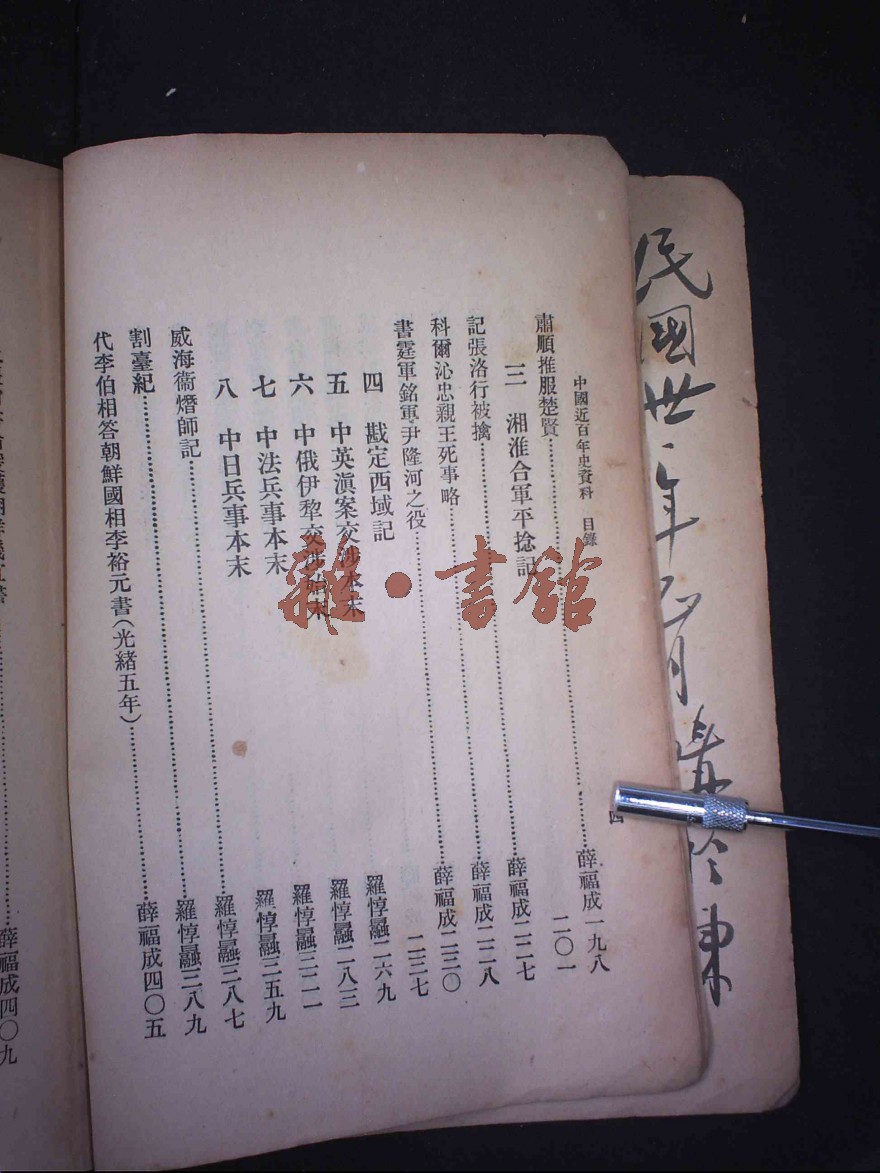 民國卅一年元月購於東
中國近百年史資料 目錄 四
肅順推服楚賢……薛福成一九八
三 湘淮合軍平捻記 二〇一
記張洛行被擒……薛福成二二七
科爾沁忠親王死事略……薛福成二二八
書霆軍銘軍尹隆河之役……薛福成二三〇
四 戡定西域記 二三七
五 中英滇案交涉本末 羅惇曧二六九
六 中俄伊犁交涉始末 羅惇曧二八三
七 中法兵事本末 羅惇曧三二一
八 中日兵事本末 羅惇曧三五九
威海衞熸師記……羅惇曧三八七
割臺紀……羅惇曧三八九
代李伯相答朝鮮國相李裕元書(光緒五年)……薛福成四〇五
薛福成四〇九
雜·書館